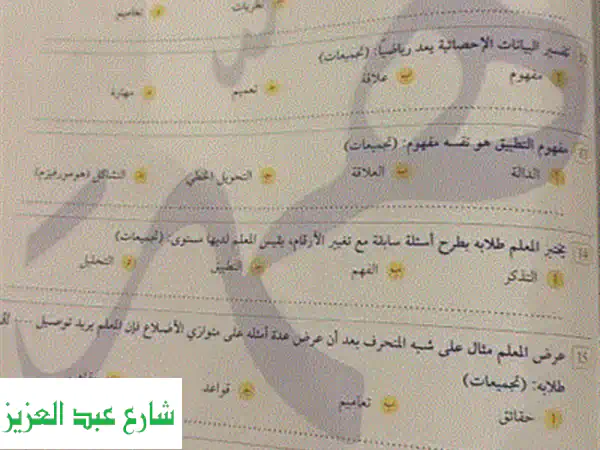 نظريات د تعاميم
12 تفسير البيانات الإحصائية يعد رياضيًا: (تجميعات)
أ مفهوم ب علاقة ج تعميم د مهارة
13 مفهوم التطبيق هو نفسه مفهوم: (تجميعات)
أ الدالة ب العلاقة ج التحويل الخطي د التشاكل (هومورفيزم)
14 يختبر المعلم طلابه بطرح أسئلة سابقة مع تغيير الأرقام، يقيس المعلم لديها مستوى: (تجميعات)
أ التذكر ب الفهم ج التطبيق د التحليل
15 عرض المعلم مثال على شبه المنحرف بعد أن عرض عدة أمثله على متوازي الأضلاع فإن المعلم يريد توصيل ....
طلابه: (تجميعات)
أ حقائق ب تعاميم ج قواعد
شارع عبد العزيز